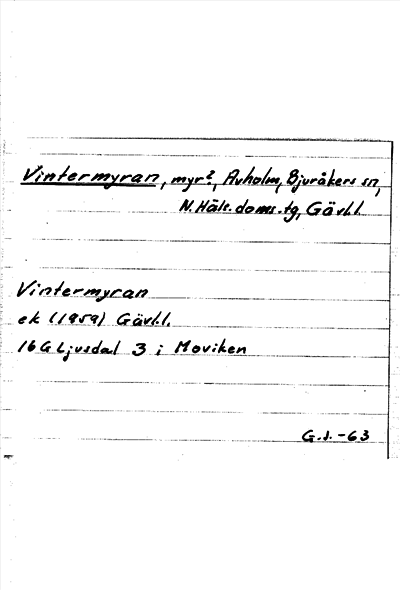 Vintermyran, myr?, Avholm, Bjuråkers sn,
N. Häls. doms. tg, Gävl.l.
Vintermyran
ek (1959) Gävl.l.
16G Ljusdal 3 i Moviken
G.s. -63